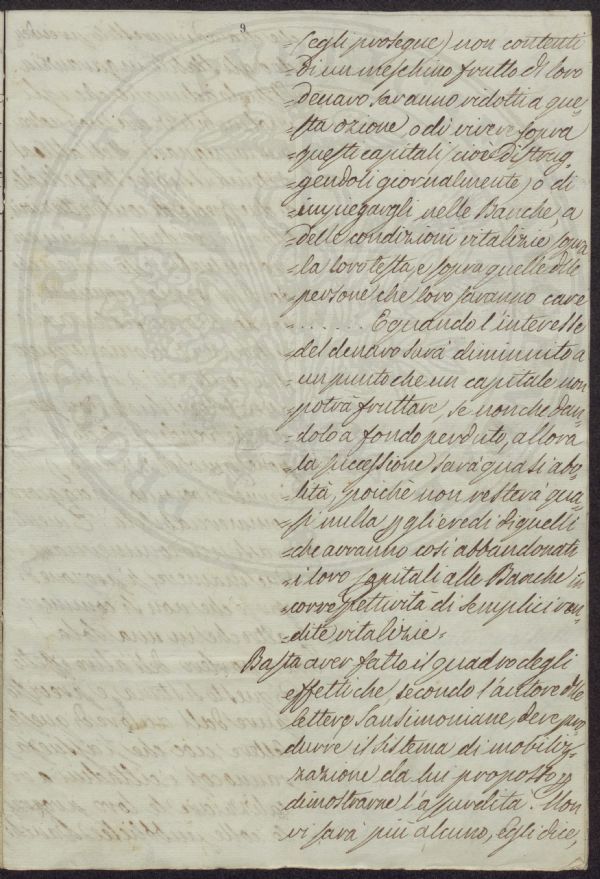 9
=(egli prosegue) non contenti
=di un meschino frutto di loro
=denaro saranno ridotti a que=
=sta ozione, o di vivere sopra
=questi capitali (cioè distrug=
=gendoli giornalmente) o di
=impiegargli nelle Banche, a
=delle condizioni vitalizie sopra
=la loro testa, e sopra quelle delle
=persone che loro saranno care
=. . . . . . . E quando l'interesse
=del denaro sarà diminuito a
=un punto che un capitale non
=potrà fruttare se non che dan=
=dolo a fondo perduto, allora
=la successione sarà quasi abo=
=lita, poichè non resterà qua=
=si nulla p gli eredi di quelli
=che avranno così abbandonati
=i loro capitali alle Banche in
=correspettività di semplici ren=
=dite vitalizie=
Basta aver fatto il quadro degli
effetti che, secondo l'autore delle
lettere Sansimoniane, deve pro
durre il sistema di mobiliz=
zazione da lui proposto, p
dimostrarne l'assurdità. Non
vi sarà più alcuno, Egli dice,